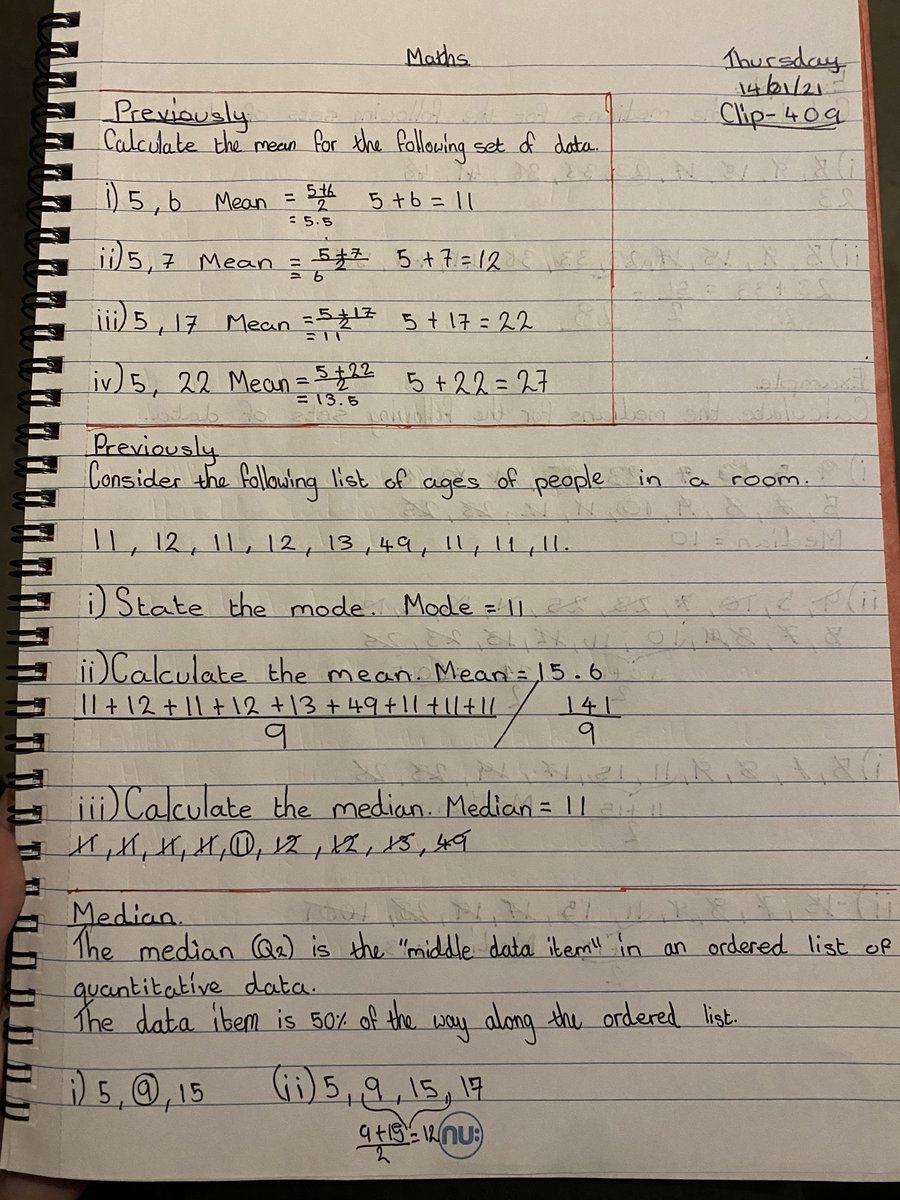 Maths
Thursday
14/01/21
Clip-409
Previously
Calculate the mean for the following set of data.
i) 5, 6 Mean = 5+6/2 5 + 6 = 11
= 5.5
ii) 5, 7 Mean = 5+7/2 5 + 7 = 12
= 6
iii) 5, 17 Mean = 5+17/2 5 + 17 = 22
= 11
iv) 5, 22 Mean = 5+22/2 5 + 22 = 27
= 13.5
Previously
Consider the following list of ages of people in a room.
11, 12, 11, 12, 13, 49, 11, 11, 11.
i) State the mode. Mode = 11
ii) Calculate the mean. Mean = 15.6
11 + 12 + 11 + 12 + 13 + 49 + 11 + 11 + 11 / 141
9 9
iii) Calculate the median. Median = 11
11, 11, 11, 11, 11, 12, 12, 13, 49
Median.
The median (Q2) is the "middle data item" in an ordered list of
quantitative data.
The data item is 50% of the way along the ordered list.
i) 5, 9, 15 (ii) 5, 9, 15, 17
9+15/2 = 12 nu: